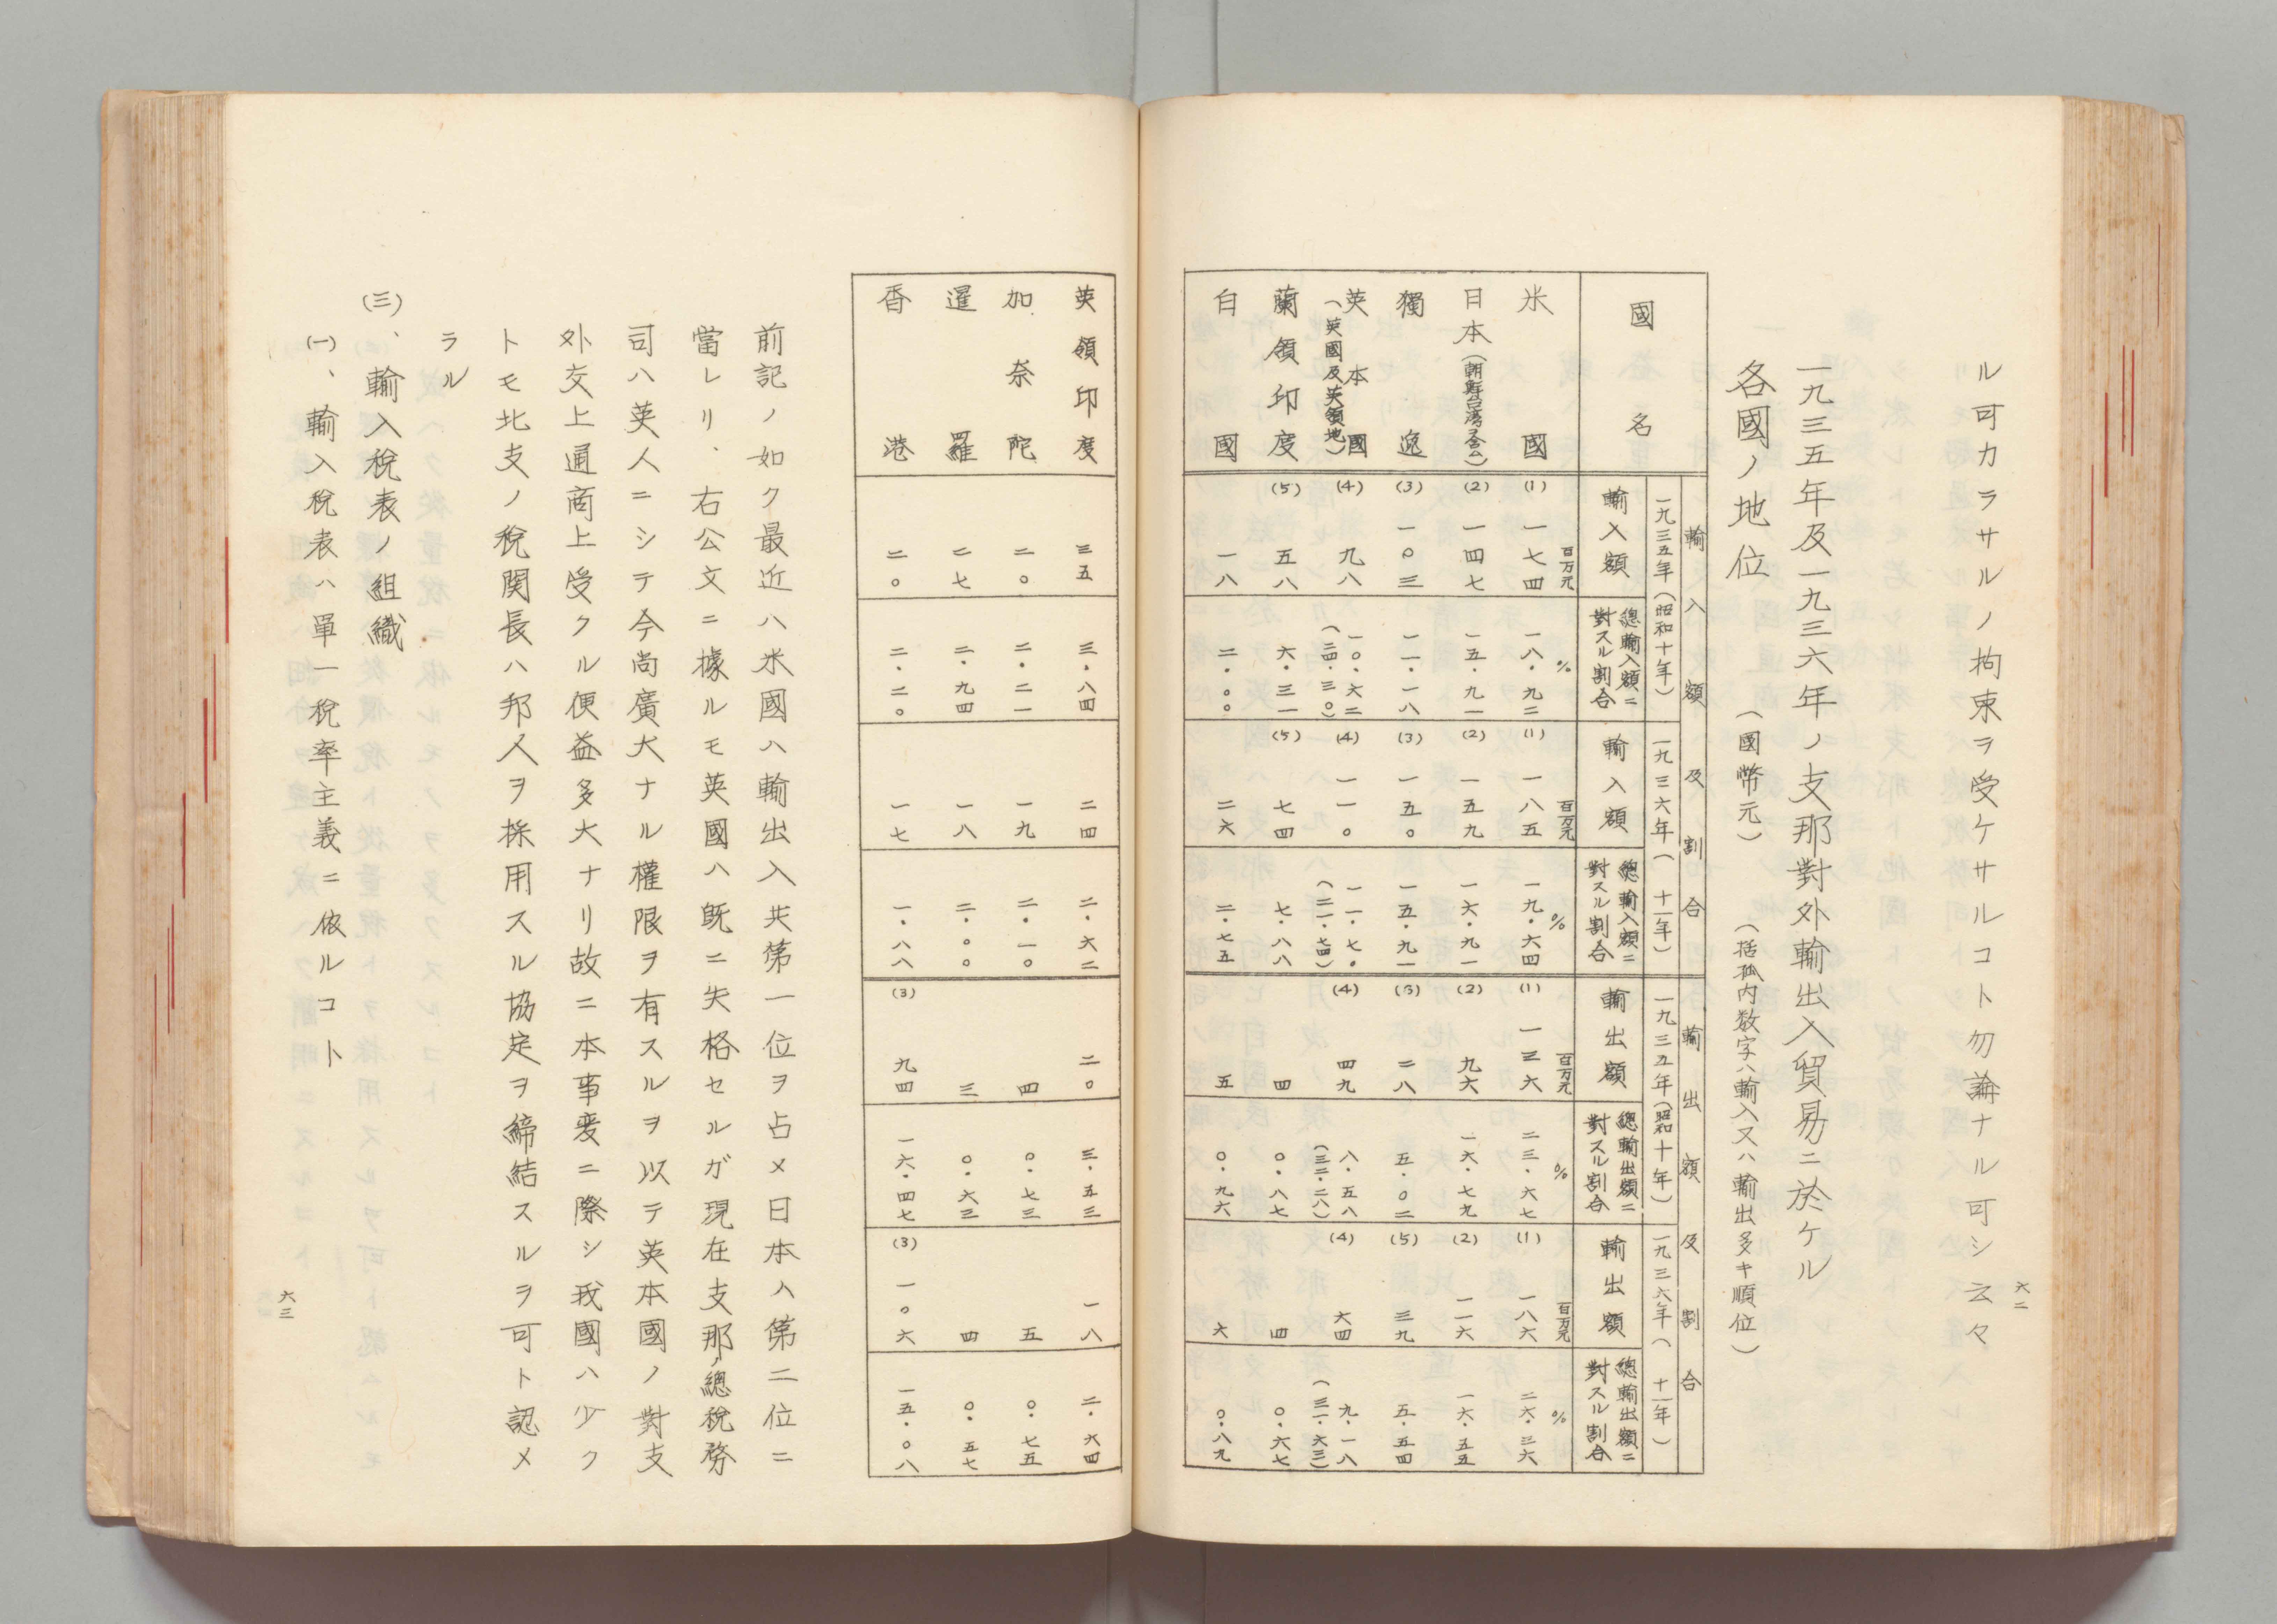 ル可カラサルノ拘束ヲ受ケサルコト勿論ナル可シ云々
六二
一九三五年及一九三六年ノ支那對外輸出入貿易ニ於ケル
各國ノ地位 (國幣元) (括弧内数字ハ輸入又ハ輸出多キ順位)
國名 輸入額及割合 輸出額及割合
一九三五年(昭和十年) 一九三六年(十一年) 一九三五年(昭和十年) 一九三六年(十一年)
輸入額 總輸入額ニ對スル割合 輸入額 總輸入額ニ對スル割合 輸出額 總輸出額ニ對スル割合 輸出額 總輸出額ニ對スル割合
百万元 % 百万元 % 百万元 % 百万元 %
米國 (1) 一七四 一八・九二 (1) 一八五 一九・六四 (1) 一三六 二三・六七 (1) 一八六 二六・三六
日本(朝鮮台湾ヲ含ム) (2) 一四七 一五・九一 (2) 一五九 一六・九一 (2) 九六 一六・七九 (2) 一一六 一六・五五
獨逸 (3) 一〇三 一一・一八 (3) 一五〇 一五・九一 (5) 二八 五・〇二 (5) 三九 五・五四
英本國 (4) 九八 一〇・六二 (4) 一一〇 一一・七〇 (4) 四九 八・五八 (4) 六四 九・一八
(英國及英領地) (二四・三〇) (二一・七四) (三二・二八) (三一・六三)
蘭領印度 (5) 五八 六・三一 (5) 七四 七・八八 四 〇・八七 四 〇・六七
白國 一八 二・〇〇 二六 二・七五 五 〇・九六 六 〇・八九
英領印度 三五 三・八四 二四 二・六二 二〇 三・五三 一八 二・六四
加奈陀 二〇 二・二一 一九 二・一〇 四 〇・七三 五 〇・七五
暹羅 二七 二・九四 一八 二・〇〇 三 〇・六三 四 〇・五七
香港 二〇 二・二〇 一七 一・八八 (3) 九四 一六・四七 (3) 一〇六 一五・〇八
前記ノ如ク最近ハ米國ハ輸出入共第一位ヲ占メ日本ハ第二位ニ
當レリ、右公文ニ據ルモ英國ハ既ニ失格セルガ現在支那ノ總税務
司ハ英人ニシテ今尚廣大ナル權限ヲ有スルヲ以テ英本國ノ對支
外交上通商上受クル便益多大ナリ故ニ本事変ニ際シ我國ハ少ク
トモ北支ノ税関長ハ邦人ヲ採用スル協定ヲ締結スルヲ可ト認メ
ラル
(三)、輸入税表ノ組織
(一)、輸入税表ハ單一税率主義ニ依ルコト
六三